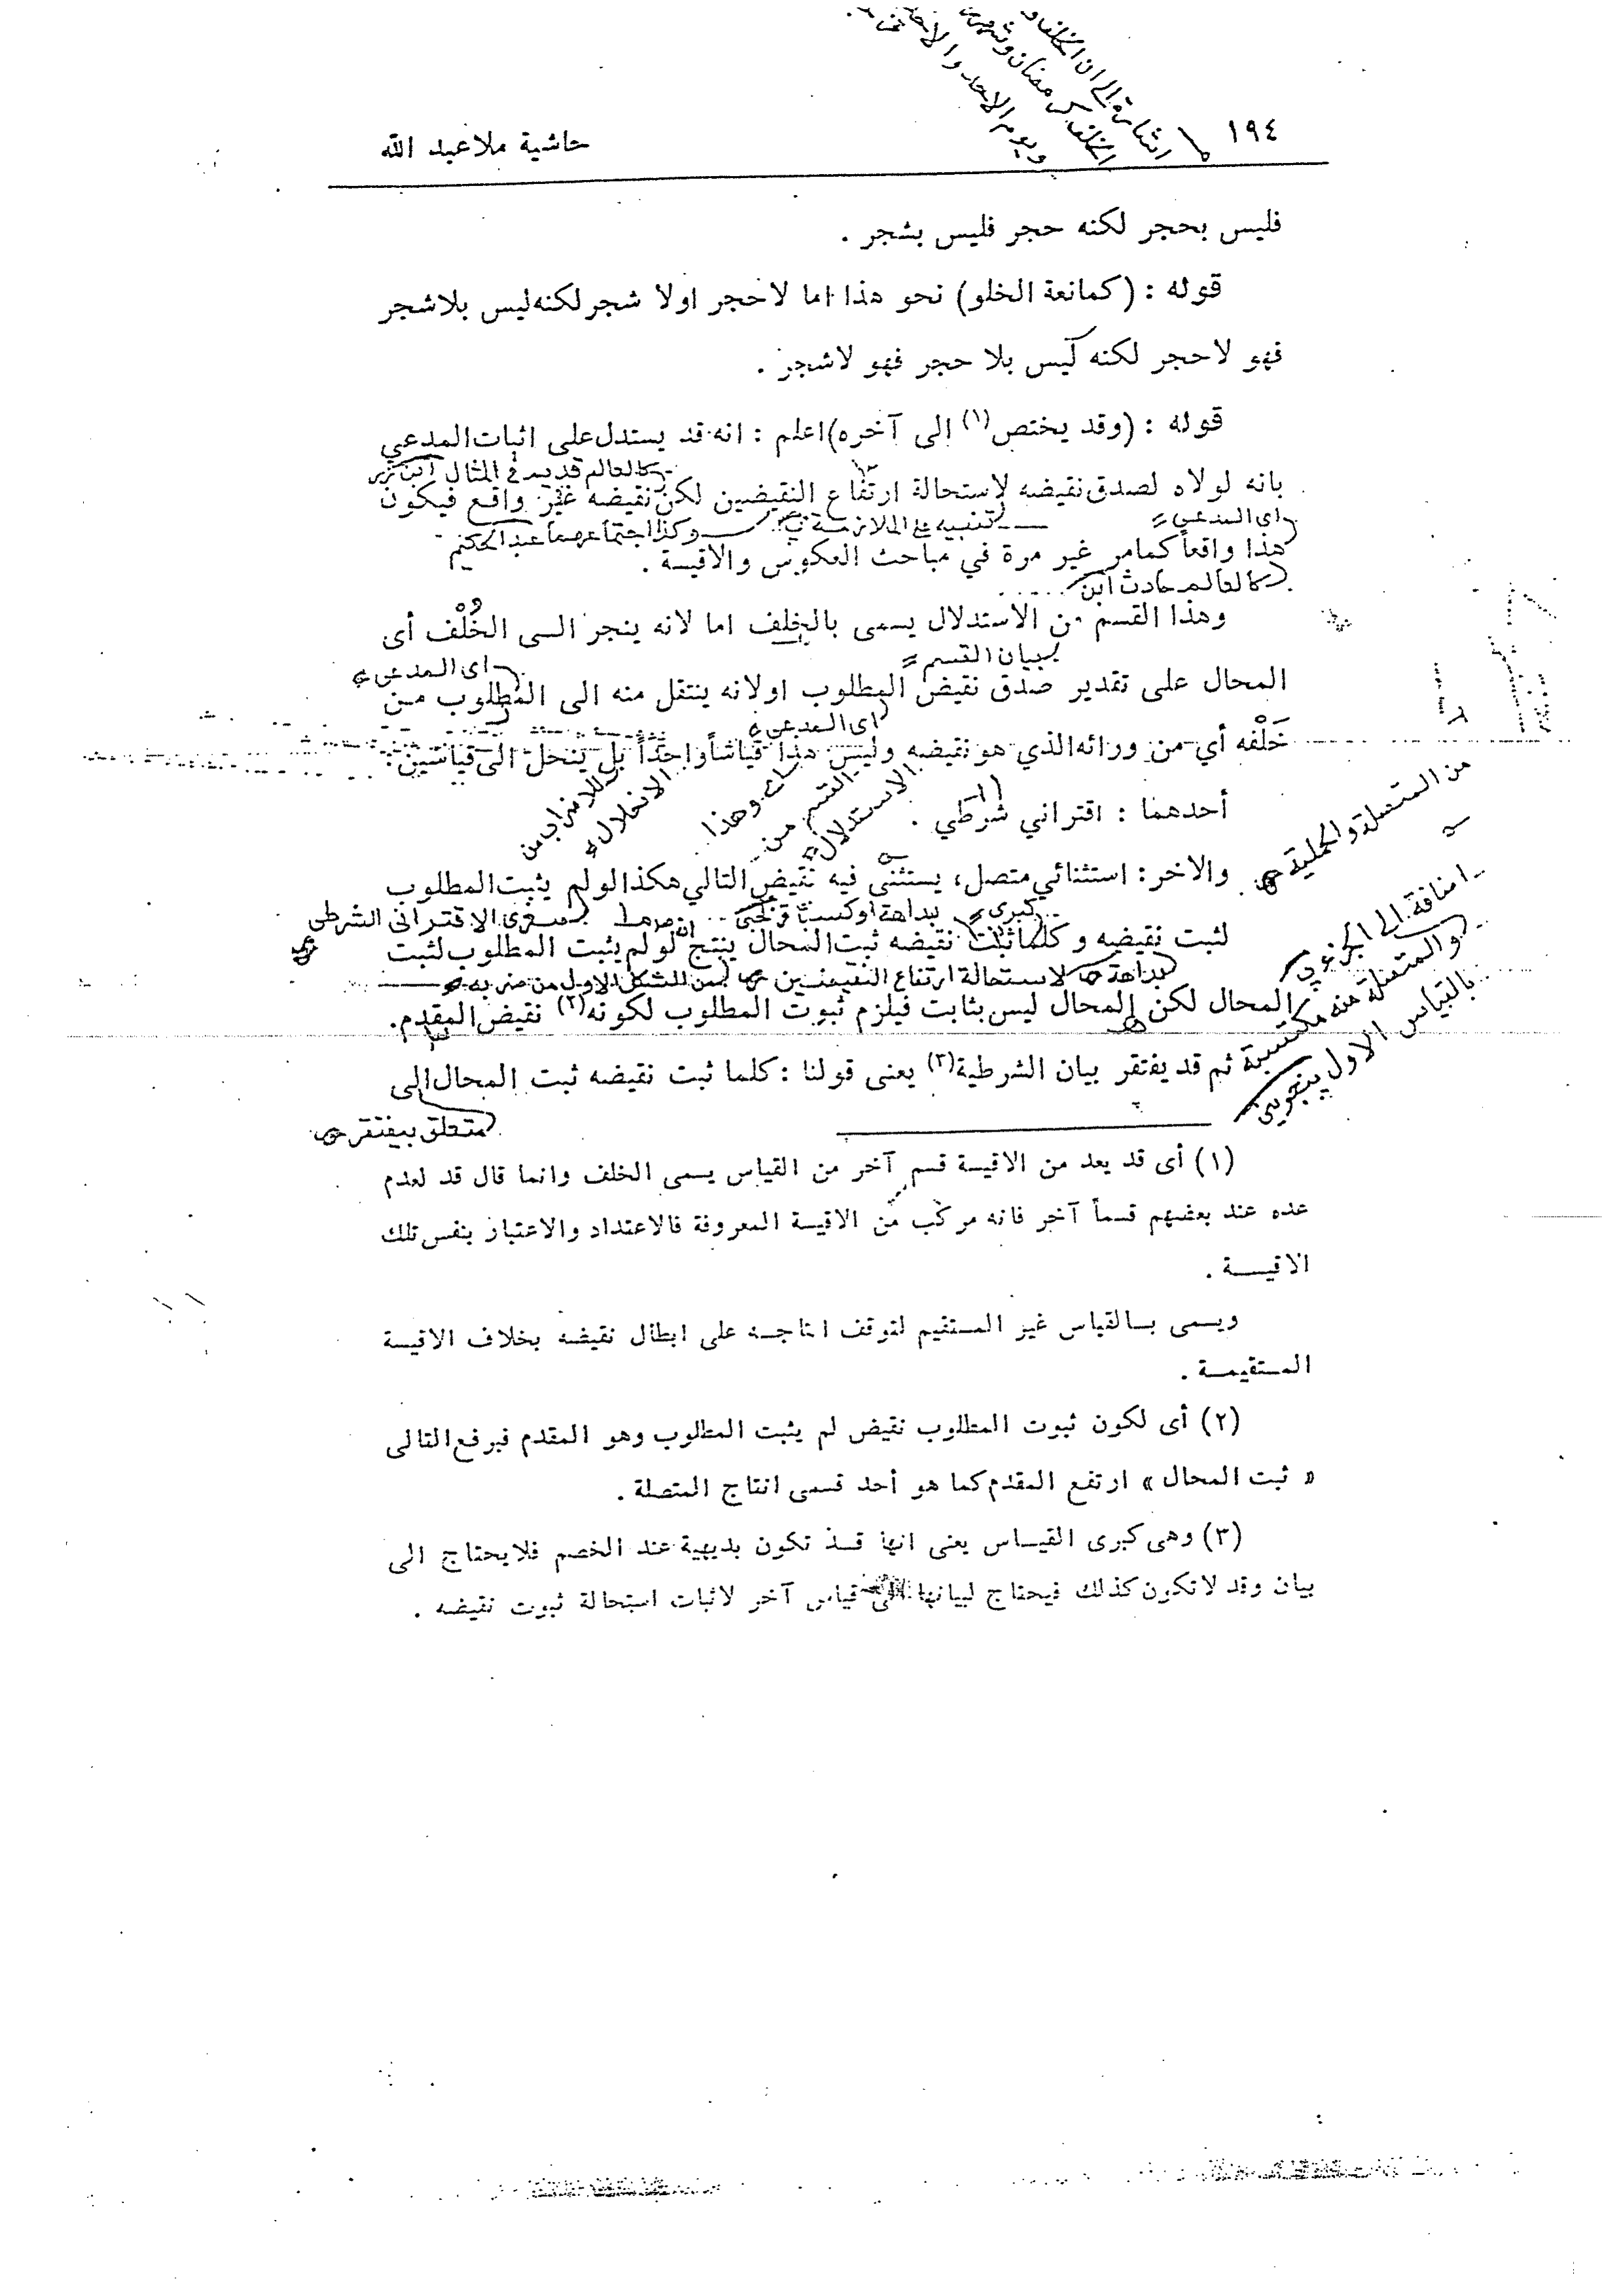 ١٩٤
حاشية ملا عبد الله
فليس بحجر لكنه حجر فليس بشجر .
قوله : (كمانعة الخلو) نحو هذا اما لاحجر اولا شجر لكنه ليس بلاشجر
فهو لاحجر لكنه ليس بلا حجر فهو لاشجر .
قوله : (وقد يختص(١) إلى آخره) اعلم : انه قد يستدل على اثبات المدعي
كالعالم قديم في المثال
بانه لولاه لصدق نقيضه لاستحالة ارتفاع النقيضين لكن نقيضه غير واقع فيكون
اى المدعى
تنبيه على الملازمة
وكذا اجتماعهما عبد الحكيم
هذا واقعاً كمامر غير مرة في مباحث العكوس والاقيسة .
كالعالم حادث
وهذا القسم من الاستدلال يسمى بالخلف اما لانه ينجر الى الخُلْف أى
بيان القسم
اى المدعى
المحال على تقدير صدق نقيض المطلوب اولانه ينتقل منه الى المطلوب من
اى المدعى
خَلْفه أي من ورائه الذي هو نقيضه وليس هذا قياساً واحداً بل ينحل الى قياسين :
الانحلال
وهذا
القسم من
الاستدلال
من المتصلة والحملية
أحدهما : اقتراني شرطي .
والاخر : استثنائي متصل، يستثنى فيه نقيض التالي هكذا لو لم يثبت المطلوب
كبرى
بداهة او كسبا
صغرى الاقترانى الشرطى
لثبت نقيضه وكلما ثبت نقيضه ثبت المحال ينتج لو لم يثبت المطلوب لثبت
بداهة
لاستحالة ارتفاع النقيضين
من الشكل الاول من ضربه
المحال لكن المحال ليس بثابت فيلزم ثبوت المطلوب لكونه(٢) نقيض المقدم.
بالقياس الاول
ثم قد يفتقر بيان الشرطية(٣) يعنى قولنا : كلما ثبت نقيضه ثبت المحال الى
متعلق بيفتقر
(١) أى قد يعد من الاقيسة قسم آخر من القياس يسمى الخلف وانما قال قد لعدم
عده عند بعضهم قسماً آخر فانه مركب من الاقيسة المعروفة فالاعتداد والاعتبار بنفس تلك
الاقيسة .
ويسمى بالقياس غير المستقيم لتوقف انتاجه على ابطال نقيضه بخلاف الاقيسة
المستقيمة .
(٢) أى لكون ثبوت المطلوب نقيض لم يثبت المطلوب وهو المقدم فبرفع التالى
« ثبت المحال » ارتفع المقدم كما هو أحد قسمى انتاج المتصلة .
(٣) وهى كبرى القياس يعنى انها قد تكون بديهية عند الخصم فلا يحتاج الى
بيان وقد لا تكون كذلك فيحتاج لبيانها الى قياس آخر لاثبات استحالة ثبوت نقيضه .